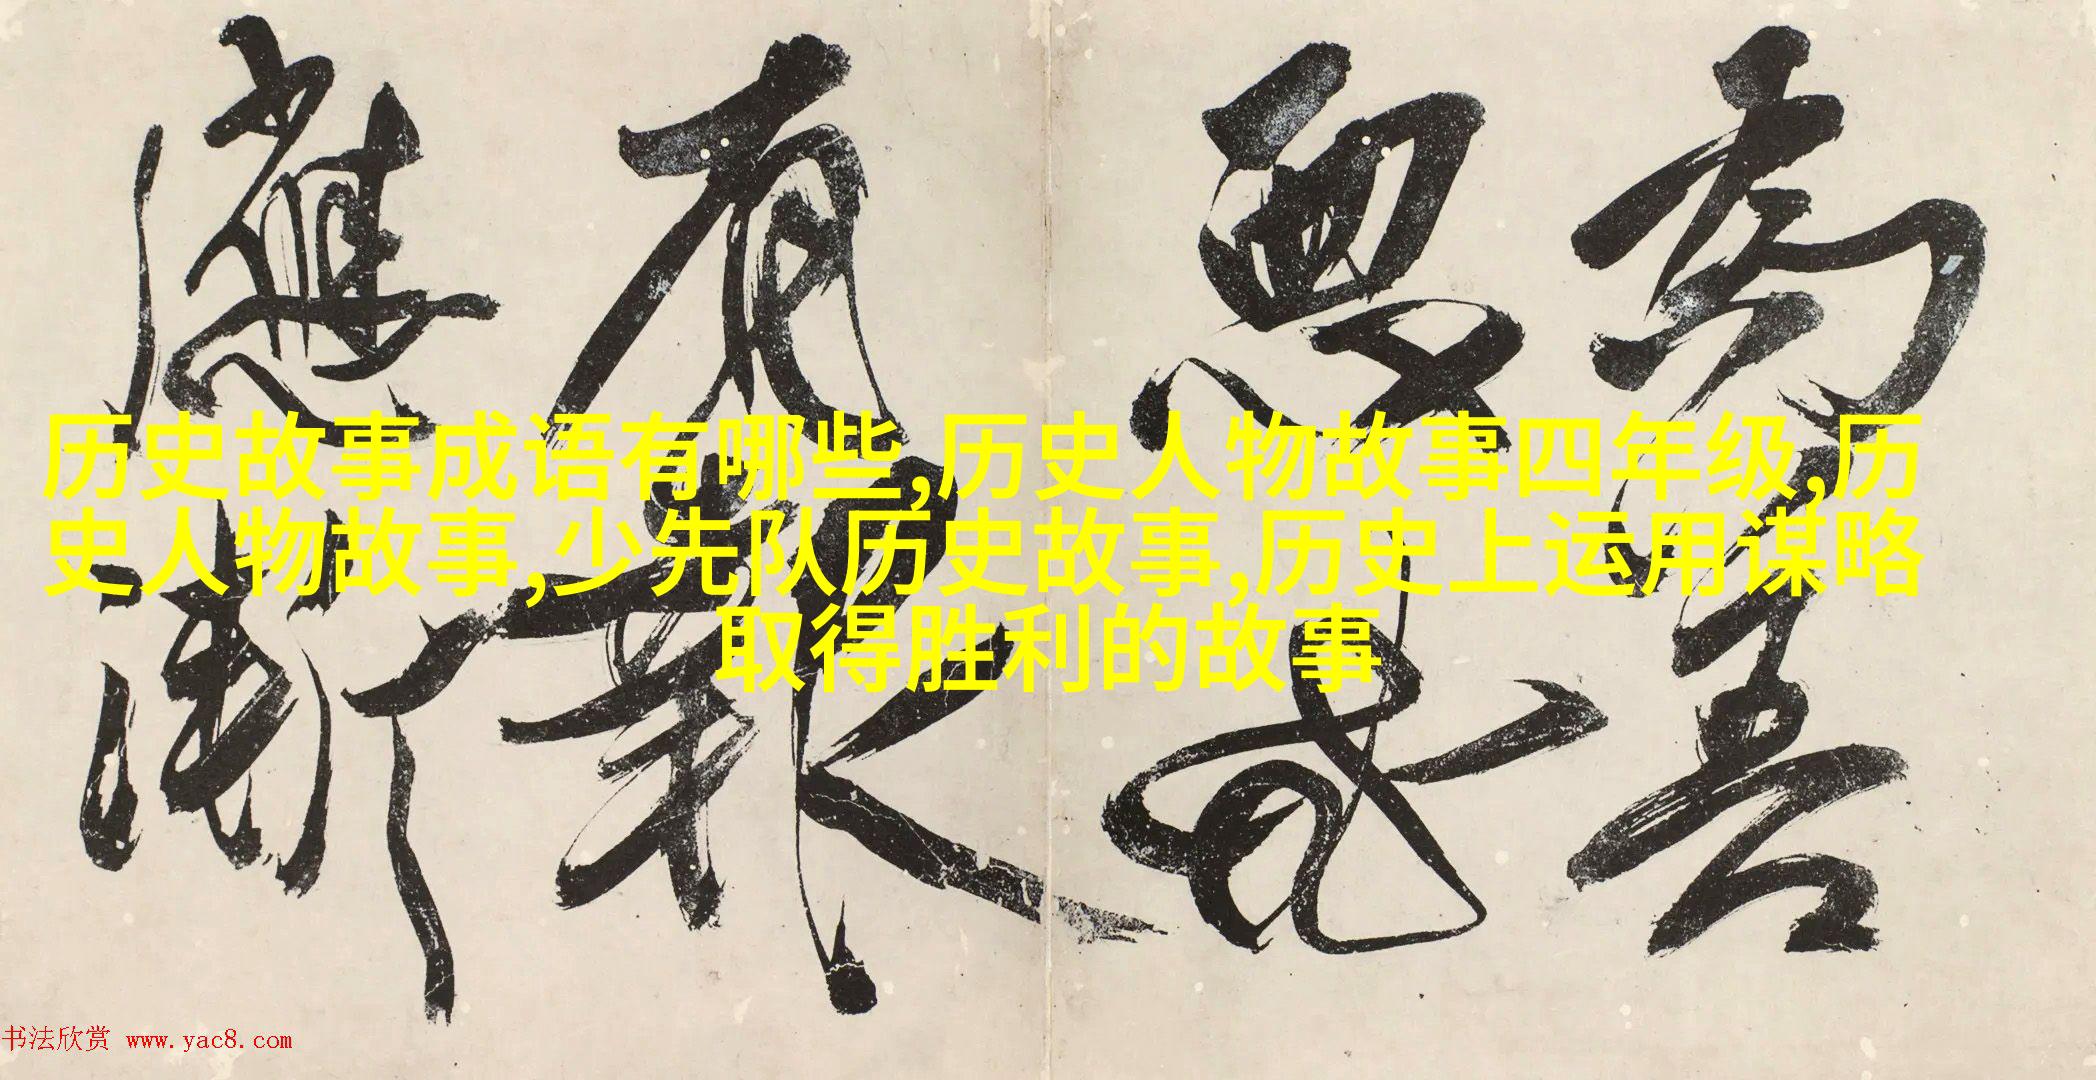 為善
惡
有報
應
历史故事成语有哪些,历史人物故事四年级,历
史人物故事,少先队历史故事,历史上运用谋略
取得胜利的故事
书法欣赏 www.yac8.com